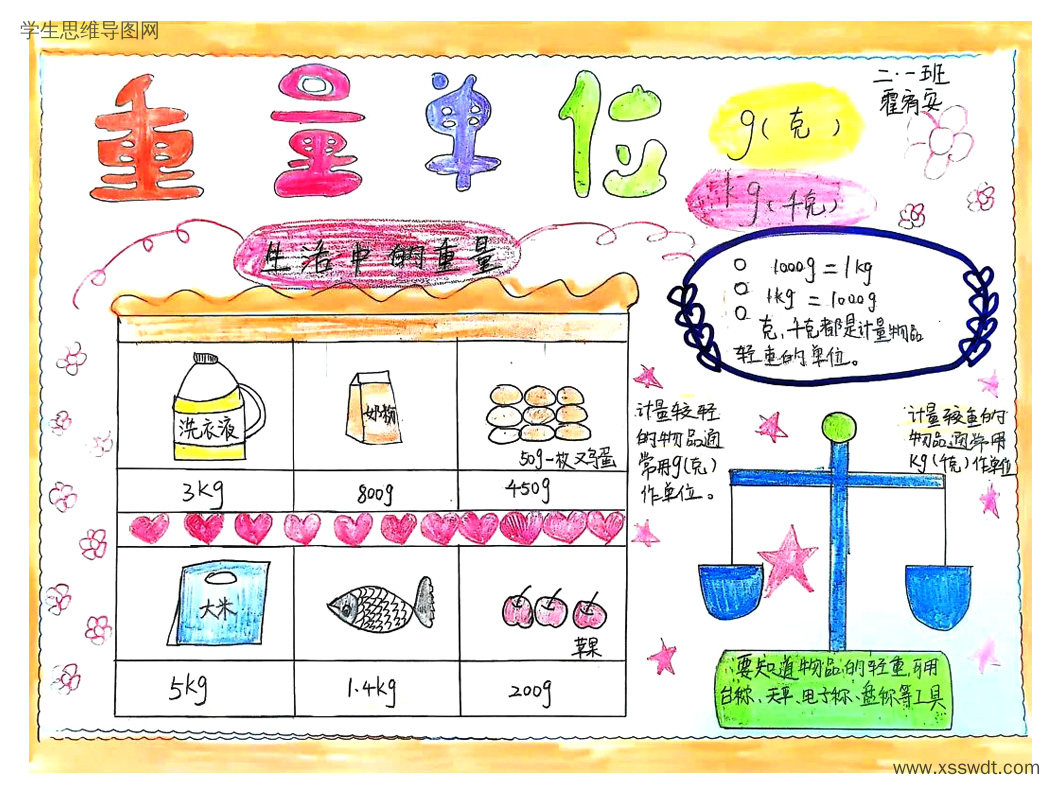 学生思维导图网
重量单位
二·一班
霍宥安
g(克)
kg(千克)
生活中的重量
1000g=1kg
1kg=1000g
克,千克都是计量物品
轻重的单位。
洗衣液
奶粉
50g一枚鸡蛋
3kg
800g
450g
大米
苹果
5kg
1.4kg
200g
计量较轻
的物品通
常用g(克)
作单位。
计量较重的
物品,通常用
kg(千克)作单位
要知道物品的轻重,可用
台称、天平、电子称、盘称等工具
www.xsswdt.com